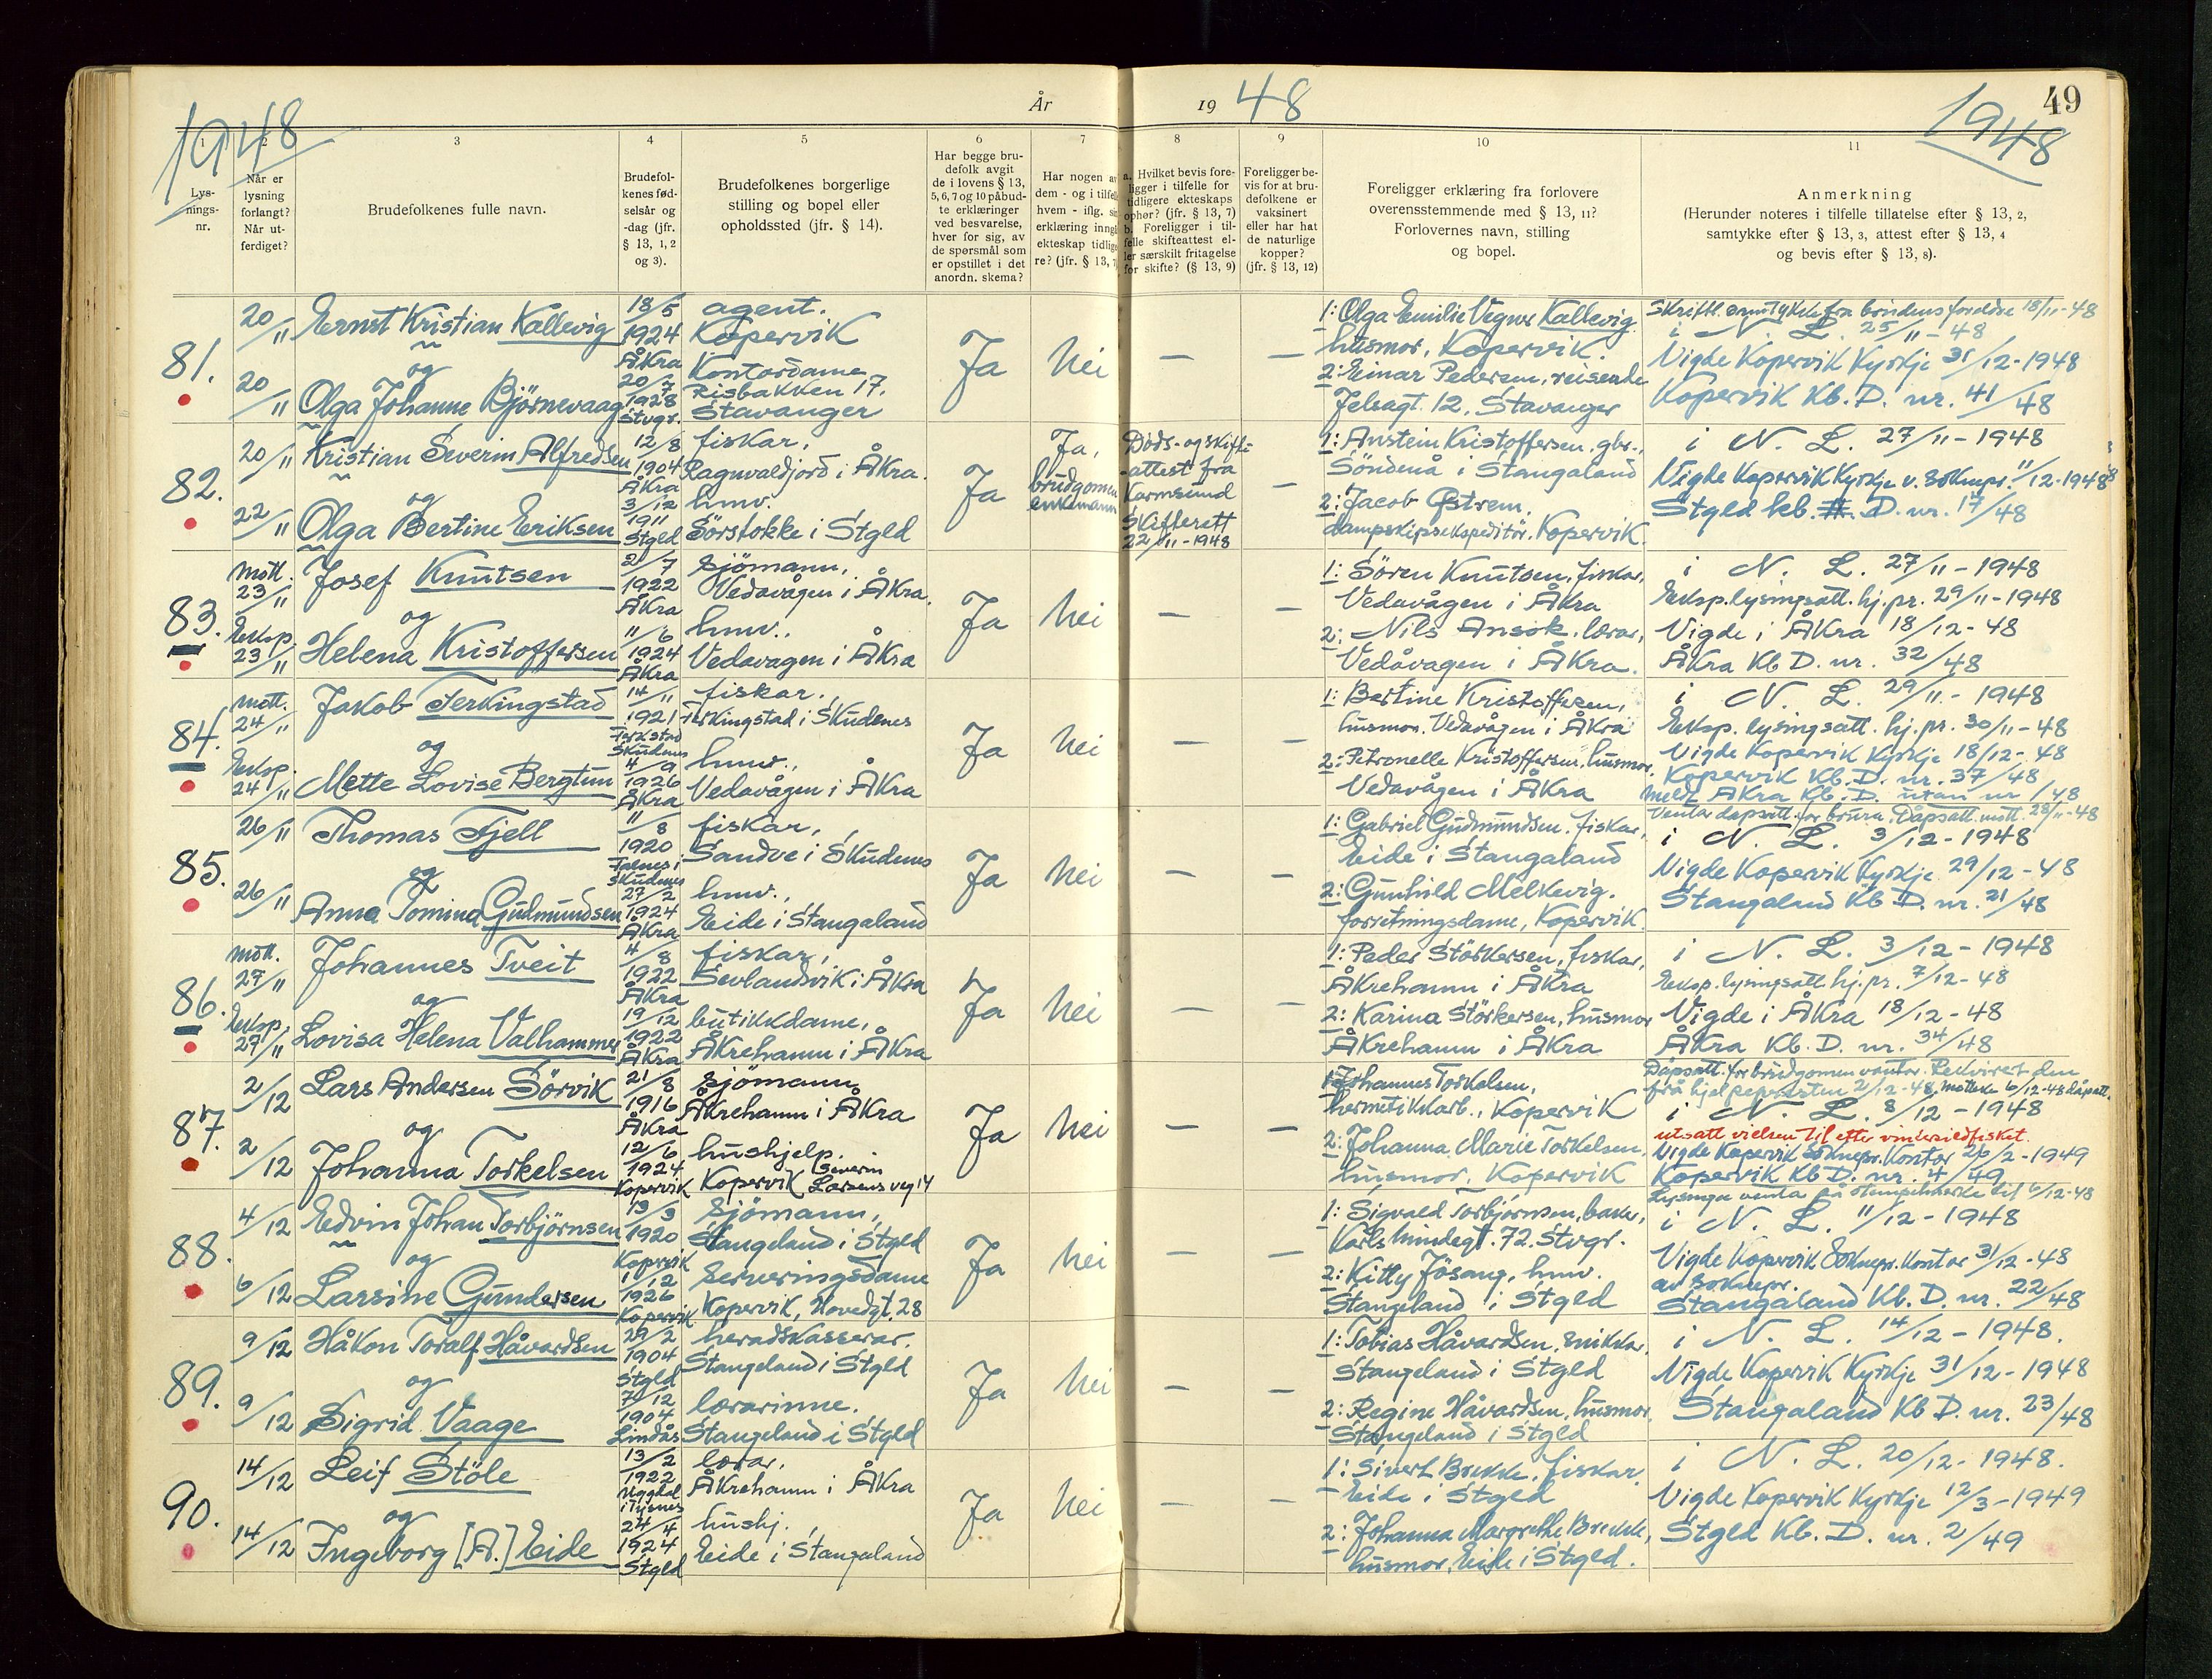 1948
År
19 48
1948
49
1
2
3
4
5
6
7
8
9
10
11
Lys-
nings-
nr.
Når er
lysning
forlangt?
Når ut-
ferdiget?
Brudefolkenes fulle navn.
Brudefol-
kenes fød-
selsår og
-dag (jfr.
§ 13, 1, 2
og 3).
Brudefolkenes borgerlige
stilling og bopel eller
opholdssted (jfr. § 14).
Har begge bru-
defolk avgit
de i lovens § 13,
5, 6, 7 og 10 påbud-
te erklæringer
ved besvarelse,
hver for sig, av
de spørsmål som
er opstillet i det
anordn. skema?
Har nogen av
dem - og i tilfelle
hvem - iflg. sin
erklæring inngå
ekteskap tidlige
re? (jfr. § 13, 7
a. Hvilket bevis fore-
ligger i tilfelle for
tidligere ekteskaps
ophør? (jfr. § 13, 7)
b. Foreligger i til-
felle skifteattest el-
ler særskilt fritagelse
for skifte? (§ 13, 9)
Foreligger be-
vis for at bru-
defolkene er
vaksinert
eller har hat
de naturlige
kopper?
(jfr. § 13, 12)
Foreligger erklæring fra forlovere
overensstemmende med § 13, 11?
Forlovernes navn, stilling
og bopel.
Anmerkning
(Herunder noteres i tilfelle tillatelse efter § 13, 2,
samtykke efter § 13, 3, attest efter § 13, 4
og bevis efter § 13, 8).
81.
20/11
20/11
Ernst Kristian Kallevig
og
Olga Johanne Björnevaag
18/5
1924
Åkra
20/7
1928
Stvgr.
agent.
Kopervik
Kontordame
Risbakken 17.
Stavanger
Ja
Nei
—
—
1: Olga Emilie Vegner Kallevig
husmor, Kopervik.
2: Einar Pedersen, reisende
Jelsagt. 12, Stavanger
Skriftl. samtykke fra brudens foreldre 18/11-48
i N. L. 25/11-48
Vigde Kopervik Kyrkje 31/12-1948
Kopervik Kb. D. nr. 41/48
82.
20/11
22/11
Kristian Severin Alfredsen
og
Olga Bertine Eriksen
12/8
1904
Åkra
3/12
1911
Stgld
fiskar,
Ragnvaldjord i Åkra.
hmv.
Sörstokke i Stgld
Ja
Ja,
brudgomen
enkemann
Døds- og skifte-
attest fra
Karmsund
Skifterett
22/11-1948
—
1: Anstein Kristoffersen, gbr.,
Söndenå i Stangaland
2: Jacob Østrem,
dampskipsekspeditör, Kopervik.
i N. L. 27/11-1948
Vigde Kopervik Kyrkje v. Soknepr. 11/12-1948
Stgld kb. D. nr. 17/48
83.
mott.
23/11
Eksp.
23/11
Josef Knutsen
og
Helena Kristoffersen
2/7
1922
Åkra
11/6
1924
Åkra
sjömann,
Vedavågen i Åkra.
hmv.,
Vedavagen i Åkra
Ja
Nei
—
—
1: Sören Knutsen, fiskar,
Vedavågen i Åkra
2: Nils Ansok, lærar,
Vedåvagen i Åkra.
i N. L. 27/11-1948
Eksp. lysingsatt. hj. pr. 29/11-1948
Vigde i Åkra 18/12-48
Åkra Kb D. nr. 32/48
84.
mott.
24/11
Eksp.
24/11
Jakob Ferkingstad
og
Mette Lovise Bergtun
14/11
1921
Ferkstad
Skudenes
4/9
1926
Åkra
fiskar.,
Ferkingstad i Skudenes
hmv.,
Vedavågen i Åkra
Ja
Nei
—
—
1: Bertine Kristoffersen,
husmor. Vedavågen i Åkra
2: Petronelle Kristoffersen, husmor,
Vedavågen i Åkra
i N. L. 29/11-1948
Eksp. lysingsatt. hj. pr. 30/11-48
Vigde Kopervik Kyrkje 18/12-48
Kopervik Kb. D. nr. 37/48
Meldt Åkra Kb. D. utan nr /48
85.
26/11
26/11
Thomas Fjell
og
Anna Tomina Gudmundsen
11/8
1920
Falnes i
Skudenes
27/2
1924
Åkra
fiskar,
Sandve i Skudenes
hmv.,
Eide i Stangaland
Ja
Nei
—
—
1: Gabriel Gudmundsen, fiskar,
Eide i Stangaland
2: Gunhild Melkevig.
forretningsdame, Kopervik.
Venta dåpsatt. for brura. Dåpsatt. mott. 28/11-48
i N. L. 3/12-1948
Vigde Kopervik Kyrkje 29/12-48
Stangaland Kb D. nr. 21/48
86.
mott.
27/11
Eksp.
27/11
Johannes Tveit
og
Lovisa Helena Valhammer
4/8
1922
Åkra
19/12
1922
Åkra
fiskar,
Sevlandsvik i Åkra
butikkdame,
Åkrehamn i Åkra
Ja
Nei
—
—
1: Peder Störkersen, fiskar,
Åkrehamn i Åkra
2: Karina Störkersen, husmor
Åkrehamn i Åkra
i N. L. 3/12-1948
Eksp. lysingsatt hj. pr. 7/12-48
Vigde i Åkra 18/12-48
Åkra Kb. D. nr. 34/48
87.
2/12
2/12
Lars Andersen Sörvik
og
Johanna Torkelsen
21/8
1916
Åkra
12/6
1924
Kopervik
sjömann
Åkrehamn i Åkra
hushjelp.
Kopervik Severin
Larsens veg 14
Ja
Nei
—
—
1: Johannes Torkelsen,
hermetikkarb., Kopervik
2: Johanna Marie Torkelsen,
husmor, Kopervik
Dåpsatt. for brudgomen vantar. Rekvirert den
frå hjelpepresten 2/12-48. Motteke 6/12-48 dåpsatt.
i N. L. 8/12-1948
utsatt vielsen til efter vintersildfisket.
Vigde Kopervik Soknepr. Kontor 26/2-1949
Kopervik Kb D. nr. 4/49
88.
4/12
6/12
Edvin Johan Torbjörnsen
og
Larsine Gundersen
13/3
1920
Kopervik
1/12
1926
Kopervik
Sjömann,
Stangeland i Stgld
Serveringsdame
Kopervik, Hovedgt. 28
Ja
Nei
—
—
1: Sigvald Torbjörnsen, baker,
Karlsmindegt. 72. Stvgr.
2: Kitty Jösang, hmv.
Stangeland i Stgld
Lysinga venta på stempelmerke til 6/12-48
i N. L. 11/12-1948
Vigde Kopervik Soknepr. Kontor 31/12-48
av Soknepr.
Stangaland Kb. D. nr. 22/48
89.
9/12
9/12
Håkon Toralf Håvardsen
og
Sigrid Vaage
29/2
1904
Stgld
7/12
1904
Lindås
heradskasserar.
Stangeland i Stgld
lærarinne.
Stangeland i Stgld
Ja
Nei
—
—
1: Tobias Håvardsen, snikkar,
Stangeland i Stgld
2: Regine Håvardsen, husmor,
Stangeland i Stgld
i N. L. 14/12-1948.
Vigde Kopervik Kyrkje 31/12-1948
Stangaland Kb D. nr. 23/48
90.
14/12
14/12
Leif Stöle
og
Ingeborg [A.] Eide
13/2
1922
Uggdal
i Tysnes
24/4
1924
Stgld
lærar,
Åkrehamn i Åkra
hushj.,
Eide i Stangaland
Ja
Nei
—
—
1: Sivert Brekke, fiskar,
Eide i Stgld
2: Johanna Margrethe Brekke,
husmor, Eide i Stgld.
i N. L. 20/12-1948.
Vigde Kopervik Kyrkje 12/3-1949
Stgld Kb. D. nr. 2/49